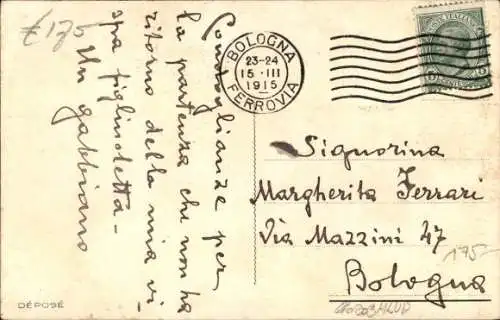 €175
Condoglianze per
la partenza che non ha
ritorno della mia vi-
spa figlioletta -
Un gabbiano
BOLOGNA
23-24
15 · III
1915
FERROVIA
POSTE ITALIANE
Signorina
Margherita Ferrari
Via Mazzini 47
Bologna
175-
DÉPOSÉ